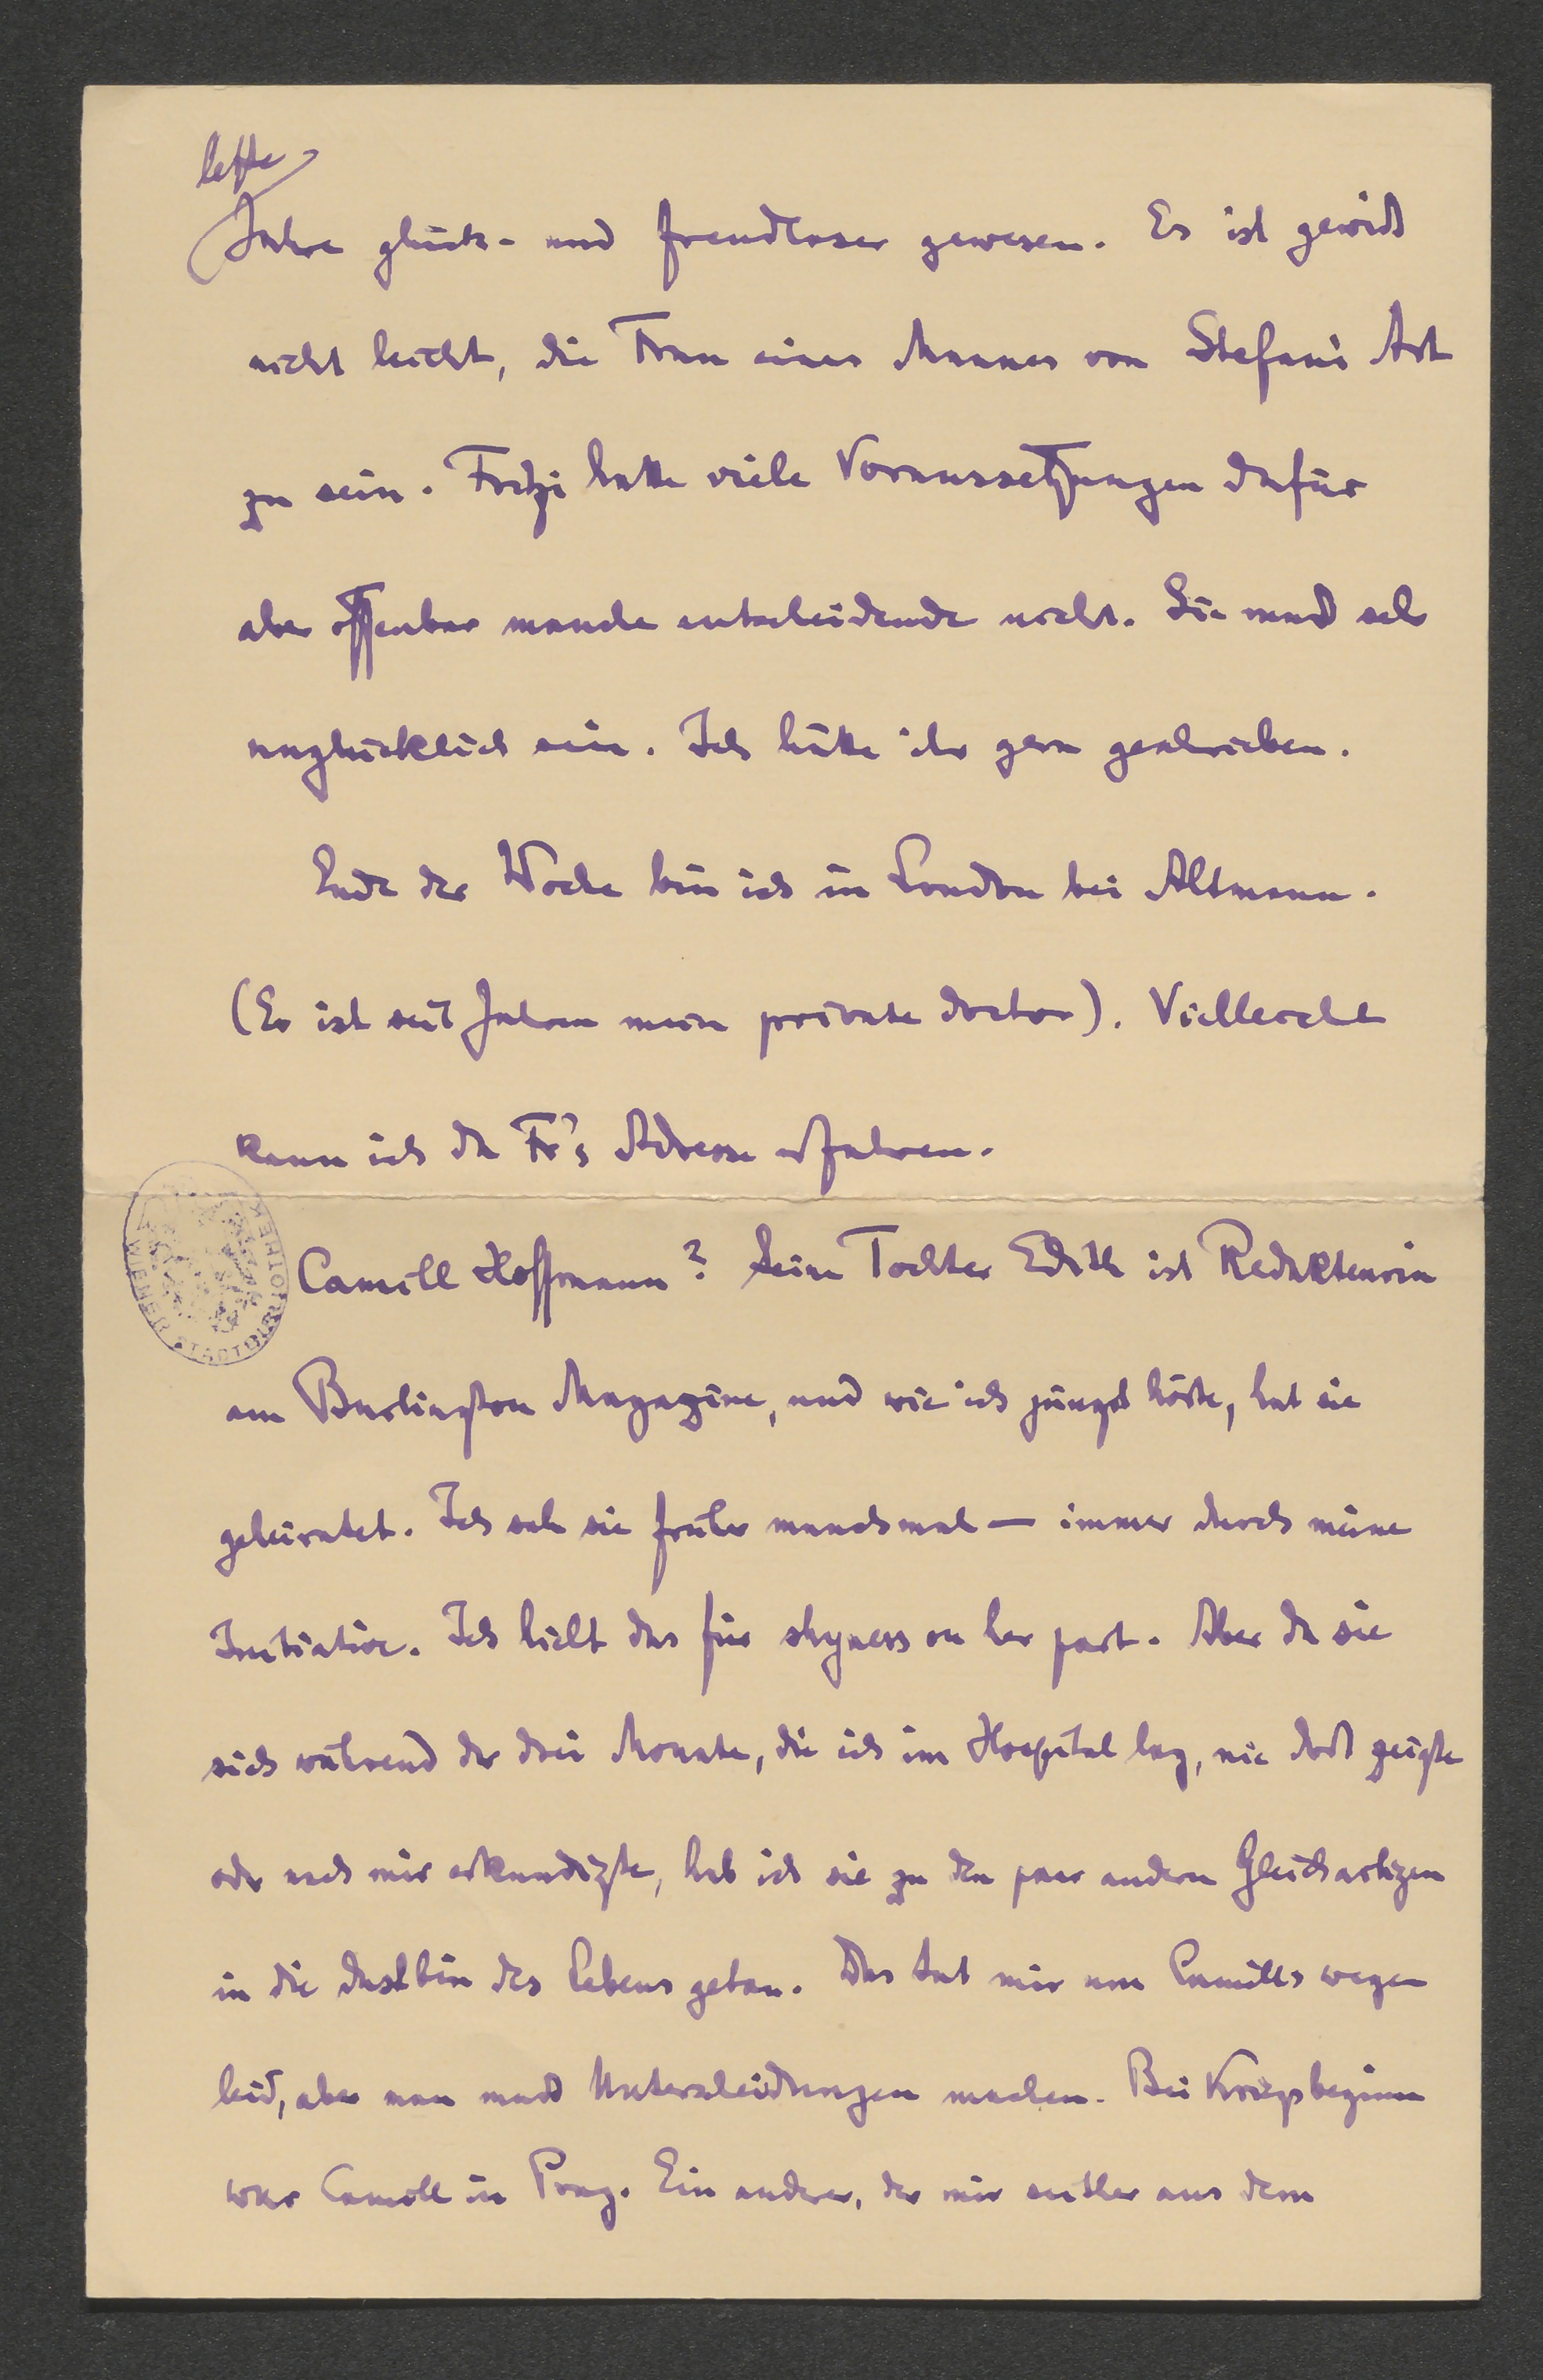 letzte
Jahre glück- und freudloser gewesen. Es ist gewiß
nicht leicht, die Frau eines Mannes von Stefans Art
zu sein. Fritzi hatte viele Voraussetzungen dafür
aber offenbar manche entscheidende nicht. Sie muß sehr
unglücklich sein. Ich hätte ihr gern geschrieben.
Ende der Woche bin ich in London bei Altmann.
(Er ist seit Jahren mein private doctor). Vielleicht
kann ich da Fr's Adresse erfahren.
Camill Hoffmann? Seine Tochter Edith ist Redakteurin
am Burlington Magazine, und wie ich jüngst hörte, hat sie
geheiratet. Ich sah sie früher manchmal — immer durch meine
Initiative. Ich hielt das für shyness on her part. Aber da sie
sich während der drei Monate, die ich im Hospital lag, nie dort zeigte
oder nach mir erkundigte, hab ich sie zu den paar andern Gleichartigen
in die dustbin des Lebens getan. Das tut mir um Camills wegen
leid, aber man muß Unterscheidungen machen. Bei Kriegsbeginn
war Camill in Prag. Ein anderer, der mir seither aus dem
WIENER STADTBIBLIOTHEK